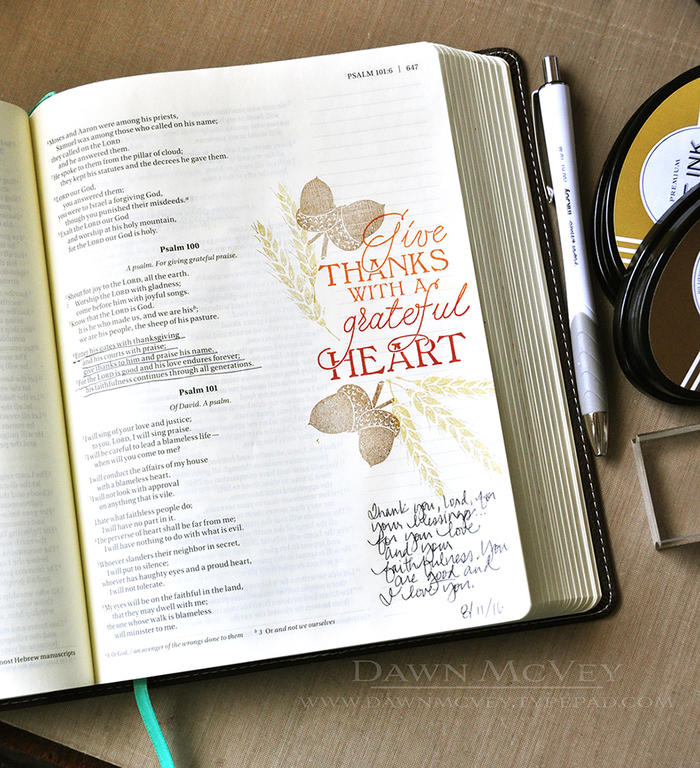 PSALM 101:6 | 647
⁶Moses and Aaron were among his priests,
Samuel was among those who called on his name;
they called on the LORD
and he answered them.
⁷He spoke to them from the pillar of cloud;
they kept his statutes and the decrees he gave them.
⁸LORD our God,
you answered them;
you were to Israel a forgiving God,
though you punished their misdeeds.ᵃ
⁹Exalt the LORD our God
and worship at his holy mountain,
for the LORD our God is holy.
Psalm 100
A psalm. For giving grateful praise.
¹Shout for joy to the LORD, all the earth.
²Worship the LORD with gladness;
come before him with joyful songs.
³Know that the LORD is God.
It is he who made us, and we are hisᵇ;
we are his people, the sheep of his pasture.
⁴Enter his gates with thanksgiving
and his courts with praise;
give thanks to him and praise his name.
⁵For the LORD is good and his love endures forever;
his faithfulness continues through all generations.
Psalm 101
Of David. A psalm.
¹I will sing of your love and justice;
to you, LORD, I will sing praise.
²I will be careful to lead a blameless life—
when will you come to me?
I will conduct the affairs of my house
with a blameless heart.
³I will not look with approval
on anything that is vile.
I hate what faithless people do;
I will have no part in it.
⁴The perverse of heart shall be far from me;
I will have nothing to do with what is evil.
⁵Whoever slanders their neighbor in secret,
I will put to silence;
whoever has haughty eyes and a proud heart,
I will not tolerate.
⁶My eyes will be on the faithful in the land,
that they may dwell with me;
the one whose walk is blameless
will minister to me.
ᵃ 8 Or God, / an avenger of the wrongs done to them
ᵇ 3 Or and not we ourselves
most Hebrew manuscripts
Give
THANKS
WITH A
grateful
HEART
Thank you, Lord, for
your blessings...
for your love
and your
faithfulness. You
are good and
I love you.
8/11/16
PREMIUM
INK
DAWN MCVEY
WWW.DAWNMCVEY.TYPEPAD.COM